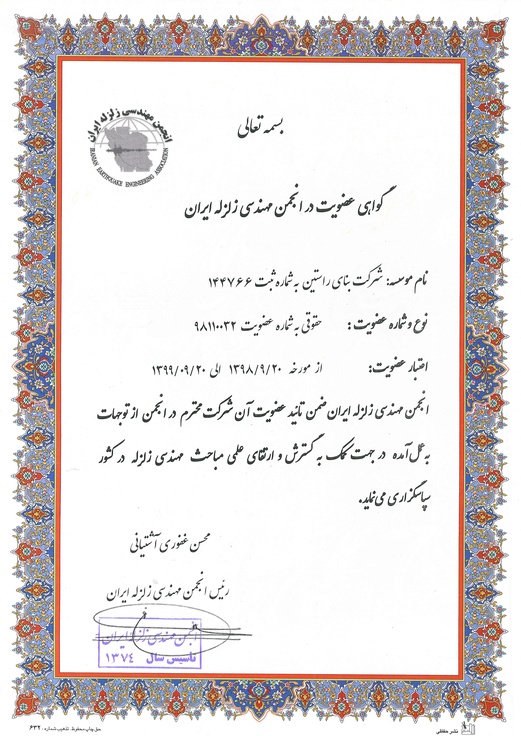 بسمه تعالی
انجمن مهندسی زلزله ایران
IRANIAN EARTHQUAKE ENGINEERING ASSOCIATION
گواهی عضویت در انجمن مهندسی زلزله ایران
نام موسسه: شرکت بنای راستین به شماره ثبت ۱۴۴۷۶۶
نوع و شماره عضویت: حقوقی به شماره عضویت ۹۸۱۱۰۰۳۲
اعتبار عضویت: از مورخه ۱۳۹۸/۹/۲۰ الی ۱۳۹۹/۰۹/۲۰
انجمن مهندسی زلزله ایران ضمن تائید عضویت آن شرکت محترم در انجمن از توجهات
به عمل آمده در جهت کمک به گسترش و ارتقای علمی مباحث مهندسی زلزله در کشور
سپاسگزاری می‌نماید.
محسن غفوری آشتیانی
رئیس انجمن مهندسی زلزله ایران
انجمن مهندسی زلزله ایران
تاسیس سال ۱۳۷٤
حق چاپ محفوظ، تذهیب شماره: ۶۳۲
نشر حقیقی